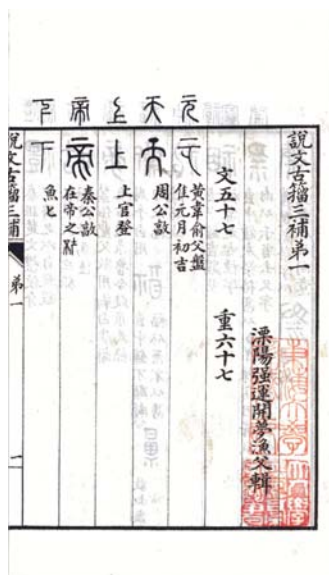 說文古籀三補弟一
溧陽强運開夢漁父輯
文五十七 重六十七
元
黃韋俞父盤
隹元月初吉
天
周公𣪘
上
上官登
帝
秦公𣪘
在帝之
下
魚匕
說文古籀三補 弟一 一